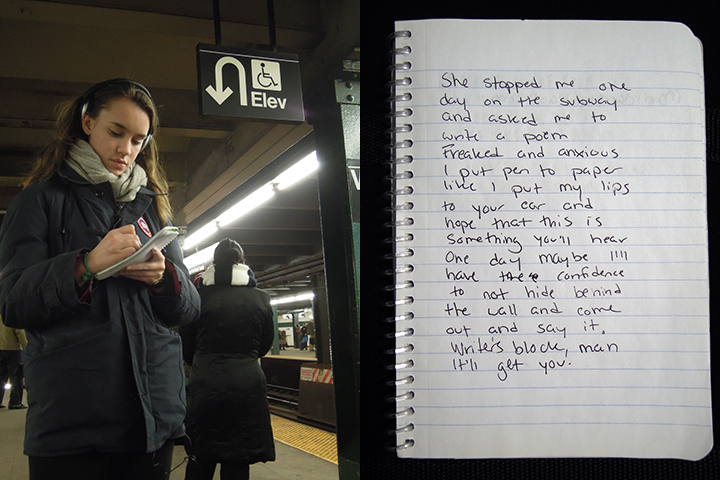 Elev
She stopped me one
day on the subway
and asked me to
write a poem
Freaked and anxious
I put pen to paper
like I put my lips
to your ear and
hope that this is
something you'll hear
One day maybe I'll
have the confidence
to not hide behind
the wall and come
out and say it.
Writer's block, man
It'll get you.